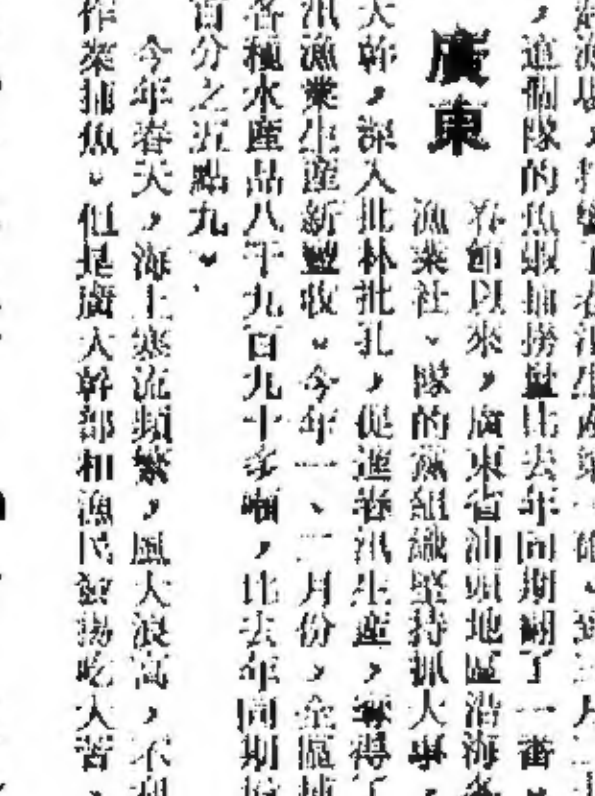 ，這個隊的魚蝦捕撈量比去年同期翻了一番
廣東
春節以來，廣東省汕頭地區沿海各
漁業社、隊的黨組織堅持抓大事，
大幹，深入批林批孔，促進春汛生產，奪得了
汛漁業生產新豐收。今年一、二月份，全區捕
各種水產品八千九百九十多噸，比去年同期
百分之五點九。
今年春天，海上寒流頻繁，風大浪高，不利
作來捕魚。但是廣大幹部和漁民發揚吃大苦、